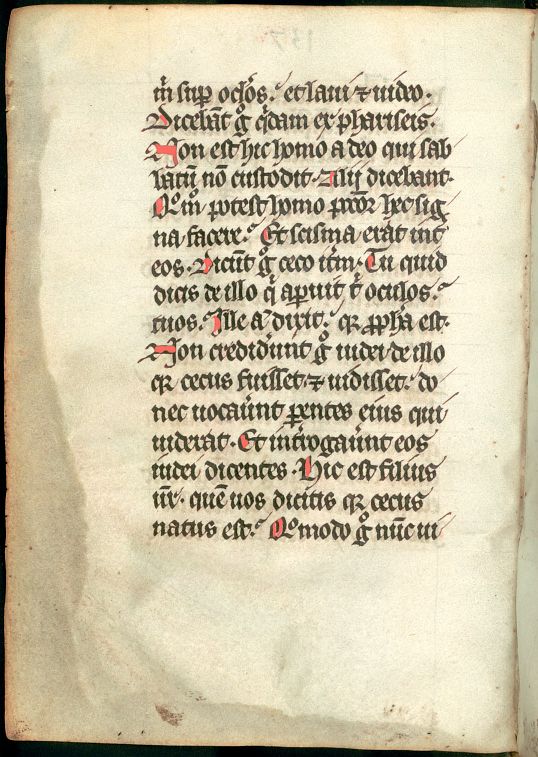 m̄ sup̱ oc̄los. et laui ⁊ uideo.
Dicebāt gͦ q̄dam ex phariseis.
Non est hic homo a deo qui sab
batū nō custodit. Alij dicebant.
Qͦm̄ potest homo pc̄cor̄ hec sig
na facere. Et scisma erat int̄
eos. Dicūt gͦ ceco itm̄. Tu quid
dicis de illo qͥ aperuit t̄ oculos
tuos. Ille a͛ dixit. qꝛ ꝓpha est.
Non credider̄unt gͦ iudei de illo
qꝛ cecus fuisset. ⁊ uidisset. do
nec uocauer̄unt ꝑentes eius qui
uiderat. Et int̄rogauer̄unt eos
iudei dicentes. Hic est filius
ur̄. quē uos dicitis qꝛ cecus
natus est. Qͦmodo gͦ nūc ui